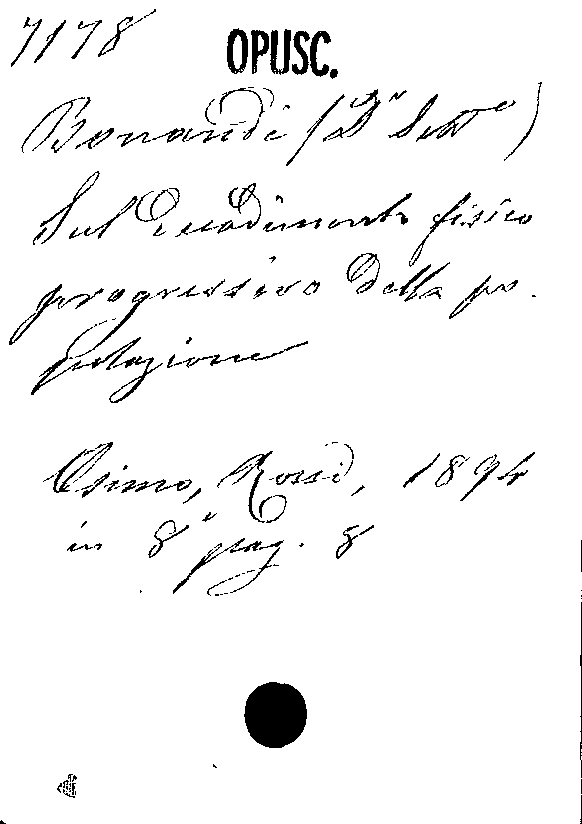 7178
OPUSC.
Bonandi (Dr Setto)
Sul decadimento fisico
progressivo della po-
polazione
Osimo, Rossi, 1894
in 8° pag. 8